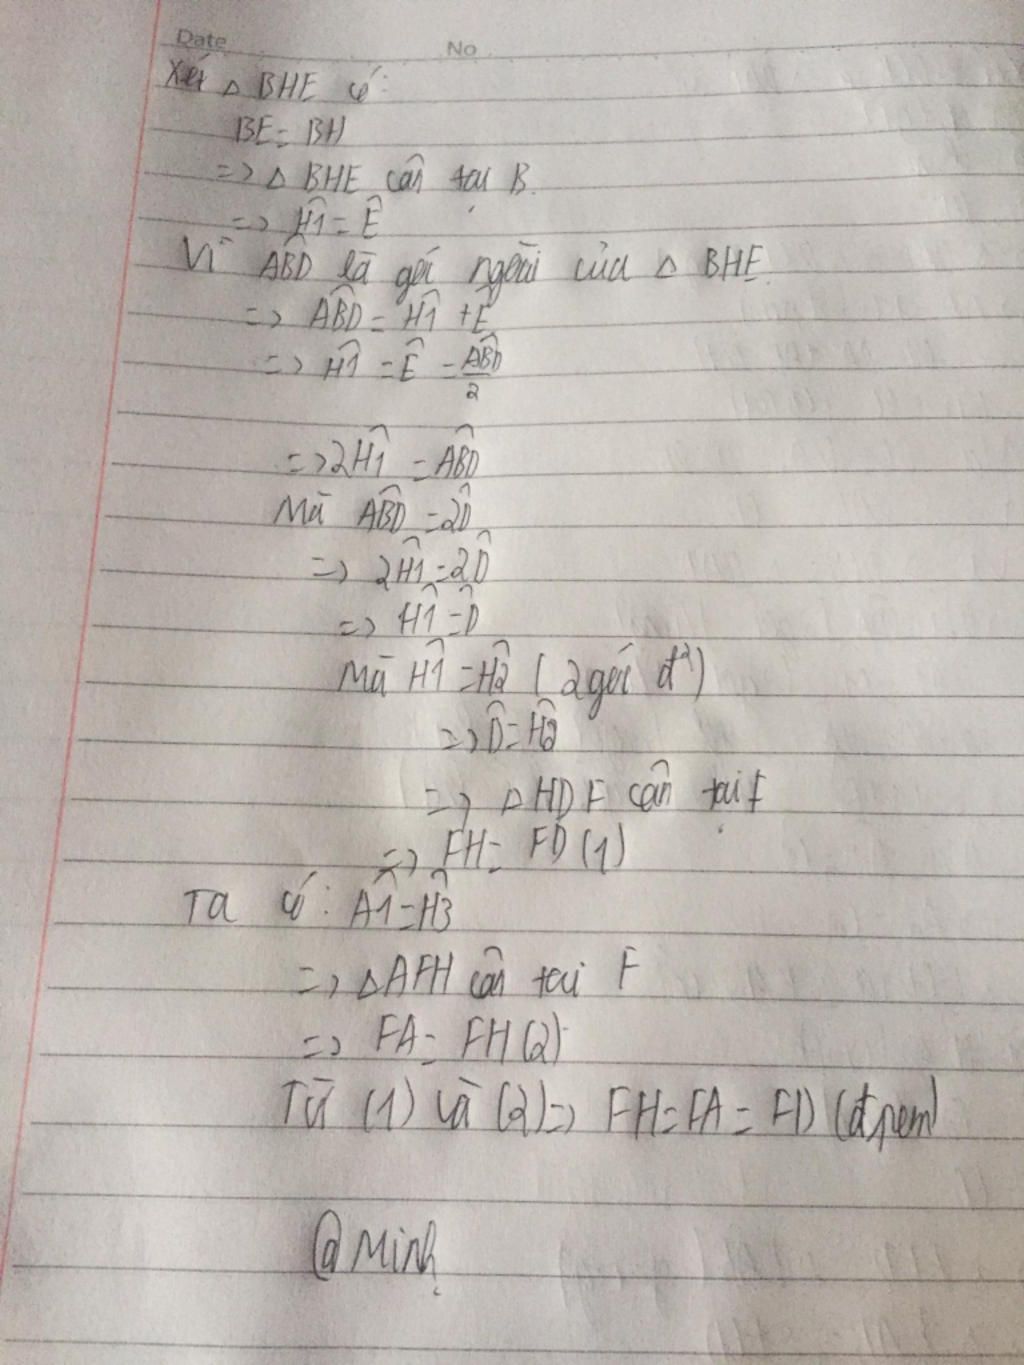 Date No
Xét △ BHE có:
BE = BH
=> △ BHE cân tại B.
=> Ĥ1 = Ê
Vì ABD là góc ngoài của △ BHE
=> ABD̂ = Ĥ1 + Ê
=> Ĥ1 = Ê = ABD̂/2
=> 2Ĥ1 = ABD̂
Mà ABD̂ = 2D̂
=> 2Ĥ1 = 2D̂
=> Ĥ1 = D̂
Mà Ĥ1 = Ĥ2 (2 góc đ²)
=> D̂ = Ĥ2
=> △ HDF cân tại F
=> FH = FD (1)
Ta có: Â1 = Ĥ3
=> △AFH cân tại F
=> FA = FH (2)
Từ (1) và (2) => FH = FA = FD (đpcm)
@Minh